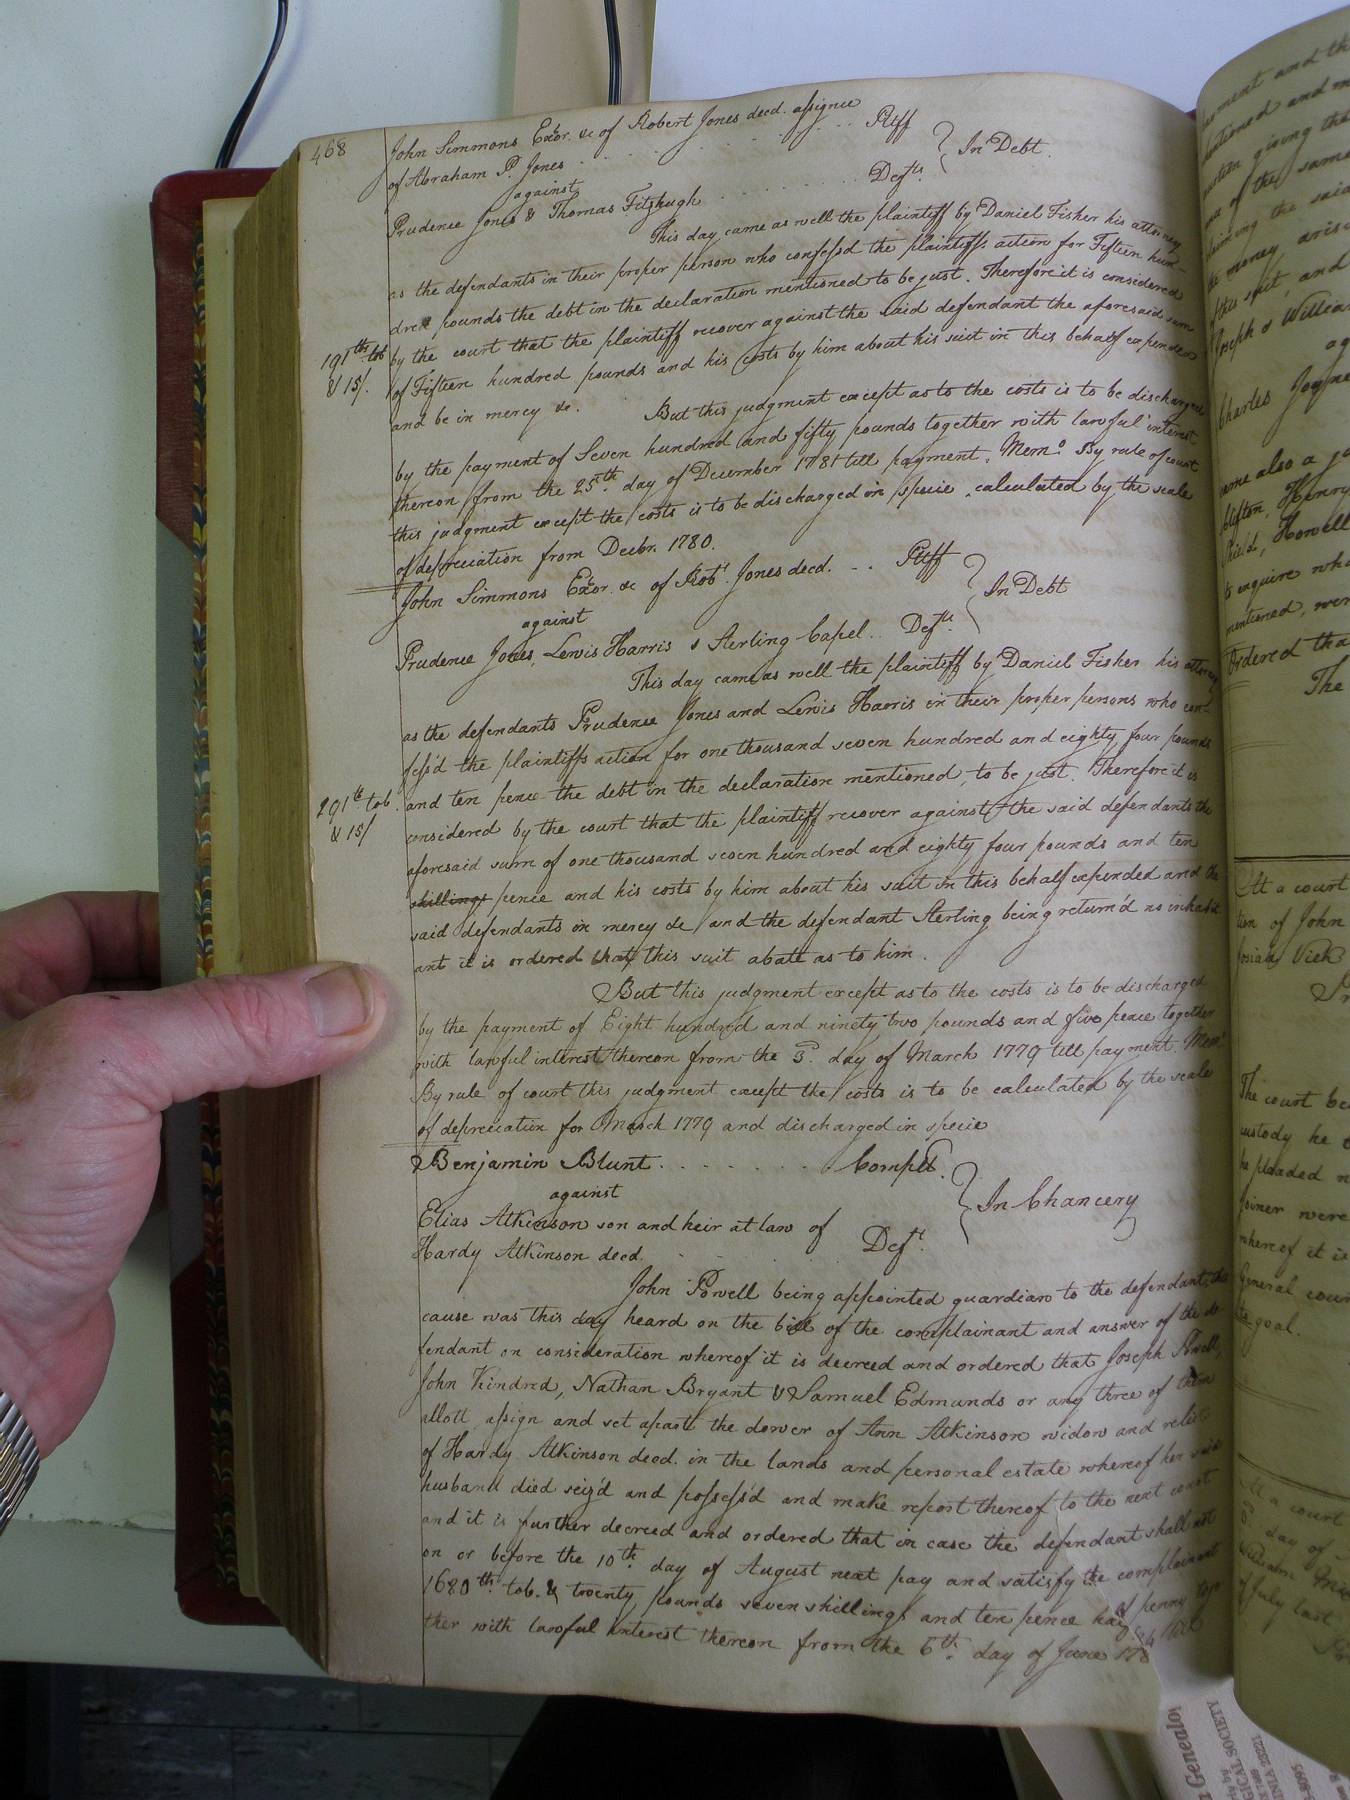 468
John Simmons Exor. &c of Robert Jones decd. assignee
of Abraham P. Jones . . . . . . . . . . Pltff
against } In Debt.
Prudence Jones & Thomas Fitzhugh . . . . . . . Defts.
This day came as well the plaintiff by Daniel Fisher his attorney
as the defendants in their proper person who confess'd the plaintiffs action for Fifteen hun-
dred pounds the debt in the declaration mentioned to be just. Therefore it is considered
191 lb tob by the court that the plaintiff recover against the said defendant the aforesaid sum
& 15/. of Fifteen hundred pounds and his costs by him about his suit in this behalf expended
and be in mercy &c. But this judgment except as to the costs is to be discharged
by the payment of Seven hundred and fifty pounds together with lawful interest
thereon from the 25th. day of December 1781 till payment. Memo. By rule of court
this judgment except the costs is to be discharged in specie calculated by the scale
of depreciation from Decbr. 1780.
John Simmons Exor. &c of Robt. Jones decd. . . Pltff
against } In Debt
Prudence Jones, Lewis Harris & Sterling Capel . . Defts.
This day came as well the plaintiff by Daniel Fisher his attorney
as the defendants Prudence Jones and Lewis Harris in their proper persons who con-
fess'd the plaintiffs action for one thousand seven hundred and eighty four pounds
291 lb tob. and ten pence the debt in the declaration mentioned, to be just. Therefore it is
& 15/ considered by the court that the plaintiff recover against the said defendants the
aforesaid sum of one thousand seven hundred and eighty four pounds and ten
shillings pence and his costs by him about his suit in this behalf expended and the
said defendants in mercy &c and the defendant Sterling being return'd no inhabit
ant it is ordered that this suit abate as to him.
But this judgment except as to the costs is to be discharged
by the payment of Eight hundred and ninety two pounds and five pence together
with lawful interest thereon from the 3d. day of March 1779 till payment. Memo.
By rule of court this judgment except the costs is to be calculated by the scale
of depreciation for March 1779 and discharged in specie
Benjamin Blunt . . . . . . . Complt.
against } In Chancery
Elias Atkinson son and heir at law of
Hardy Atkinson decd. . . . Deft.
John Powell being appointed guardian to the defendant, the
cause was this day heard on the bill of the complainant and answer of the de
fendant on consideration whereof it is decreed and ordered that Joseph Powell,
John Kindred, Nathan Bryant & Samuel Edmunds or any three of them
allott assign and set apart the dower of Ann Atkinson widow and relict
of Hardy Atkinson decd. in the lands and personal estate whereof her said
husband died seiz'd and possess'd and make report thereof to the next court
and it is further decreed and ordered that in case the defendant shall not
on or before the 10th. day of August next pay and satisfy the complainant
1680 lb tob. & twenty pounds seven shillings and ten pence half penny toge
ther with lawful interest thereon from the 6th. day of June 1784 till